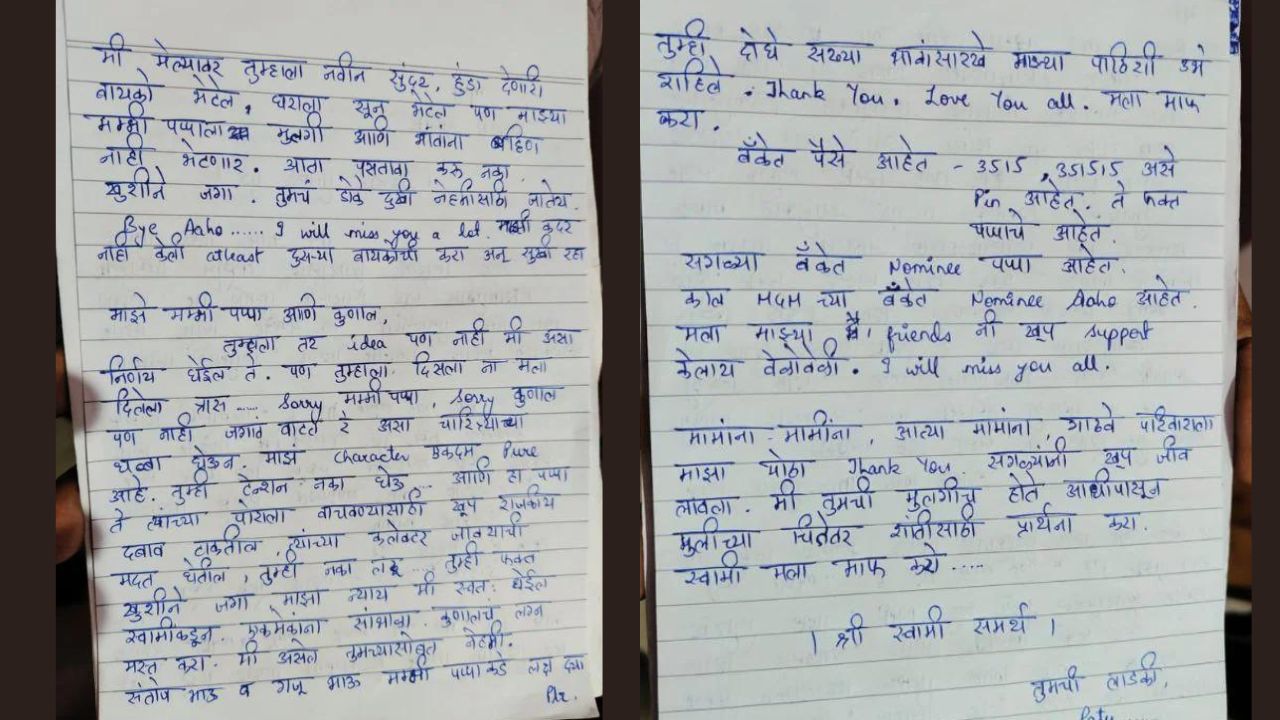 मी मेल्यावर तुम्हाला नवीन सुंदर, हुंडा देणारी
बायको भेटेल, घराला सून भेटेल पण माझ्या
मम्मी पप्पाला मुलगी आणि भावांना बहिण
नाही भेटणार. आता पस्तावा करू नका.
खुशीने जगा. तुमचं डोके दुखी नेहमीसाठी जातेय.
Bye Aaho...... I will miss you a lot. माझी कदर
नाही केली atleast दुसऱ्या बायकोची करा अन् सुखी रहा
माझे मम्मी पप्पा आणि कुणाल,
तुम्हाला तर idea पण नाही मी असा
निर्णय घेईल ते. पण तुम्हाला दिसला ना मला
दिलेला त्रास .... Sorry मम्मी पप्पा, Sorry कुणाल
पण नाही जगावं वाटत रे असा चारित्र्याच्या
धब्बा घेऊन. माझं character एकदम Pure
आहे. तुम्ही टेन्शन नका घेऊ... आणि हा पप्पा
ते त्यांच्या पोराला वाचवण्यासाठी खूप राजकीय
दबाव टाकतील, त्यांच्या कलेक्टर जावयाची
मदत घेतील, तुम्ही नका लढू ... तुम्ही फक्त
खुशीने जगा माझा न्याय मी स्वतः घेईल
स्वामींकडून. एकमेकांना सांभाळा. कुणालचं लग्न
मस्त करा. मी असेल तुमच्यासोबत नेहमी.
संतोष भाऊ व गजू भाऊ मम्मी पप्पा कडे लक्ष द्या
Plz.
तुम्ही दोघे सख्या भावासारखे माझ्या पाठिशी उभे
राहिले. Thank You. Love You all. मला माफ
करा.
बँकेत पैसे आहेत - 3515, 351515 असे
Pin आहेत. ते फक्त
पप्पाचे आहेत.
सगळ्या बँकेत Nominee पप्पा आहेत.
च्या बँकेत Nominee Aaho आहेत.
मला माझ्या friends नी खूप support
केलाय वेळोवेळी. I will miss you all.
मामांना - मामींना, आत्या मामांना, आठवे परिवाराला
माझा मोठा Thank You. सगळ्यांनी खूप जीव
लावला. मी तुमची मुलगीच होते आधीपासून
मुलीच्या चितेवर शांतीसाठी प्रार्थना करा.
स्वामी मला माफ करो.....
। श्री स्वामी समर्थ ।
तुमची लाडकी,